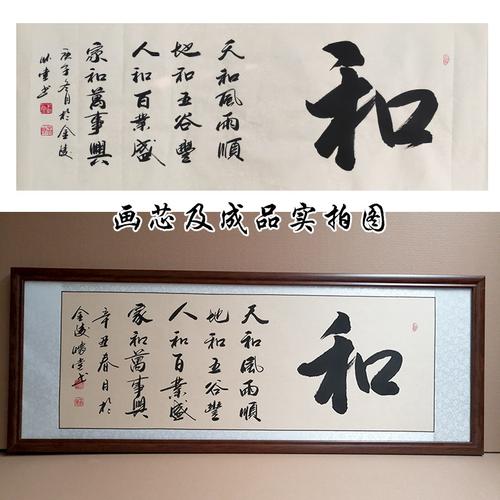 和
天和風雨順
地和五谷豐
人和百業盛
家和萬事興
庚子冬月於金陵
画芯及成品实拍图
和
天和風雨順
地和五谷豐
人和百業盛
家和萬事興
辛丑春日於
金陵